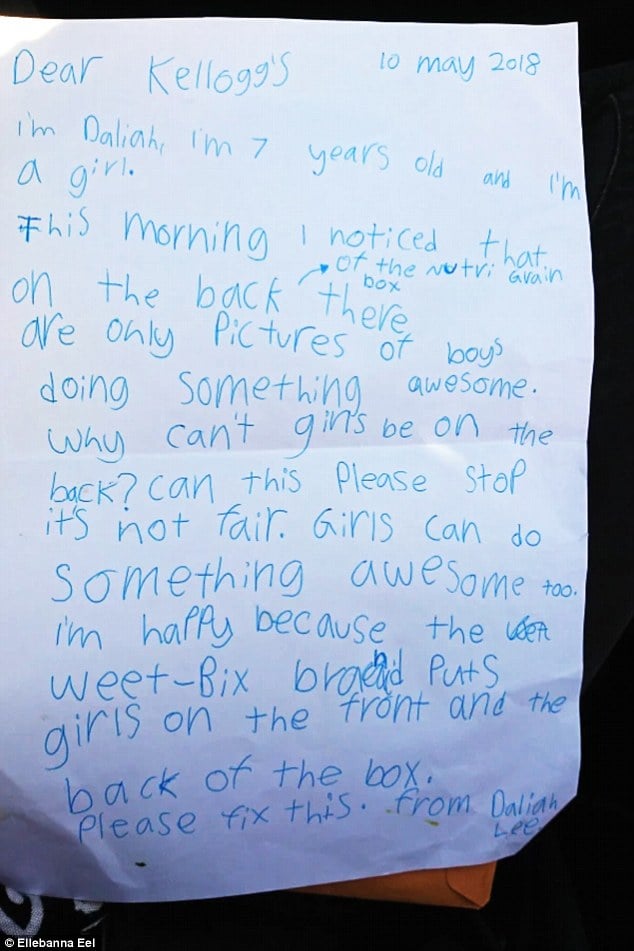 Dear Kellogg's 10 may 2018
i'm Daliah, i'm 7 years old and I'm
a girl.
This morning I noticed that
of the nutri Grain
box
on the back there
are only Pictures of boys
doing something awesome.
why can't girls be on the
back? can this Please stop
it's not fair. Girls can do
something awesome too.
i'm happy because the
weet-Bix brand Puts
girls on the front and the
back of the box.
Please fix this. from Daliah
Lee
© Ellebanna Eel